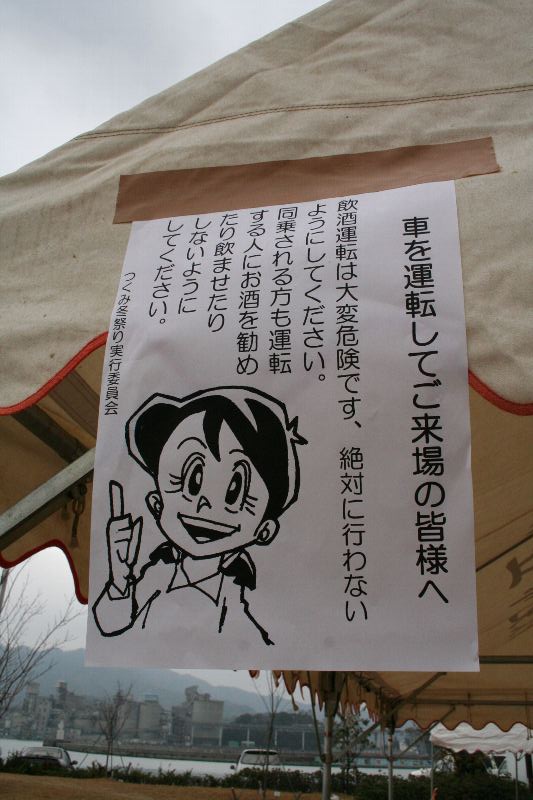 車を運転してご来場の皆様へ
飲酒運転は大変危険です、絶対に行わない
ようにしてください。
同乗される方も運転
する人にお酒を勧め
たり飲ませたり
しないように
してください。
つくみ冬祭り実行委員会